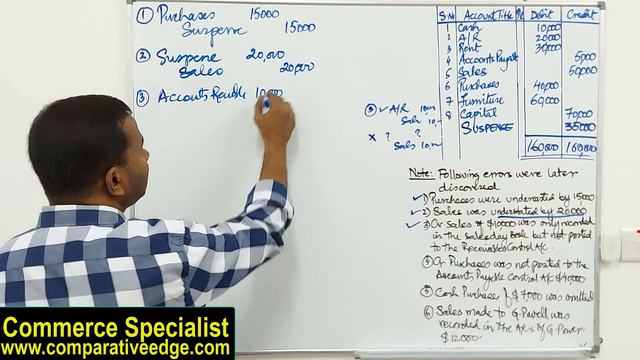 ① Purchases 15000
Suspense 15000
② Suspene 20,000
Sales 20,000
③ Accounts
S.N Account Title Debit Credit
1 Cash 10,000
2 A/R 20,000
3 Rent 30,000
4 Accounts Payable 5,000
5 Sales 50,000
6 Purchases 40,000
7 Furniture 60,000
8 Capital 70,000
SUSPENSE 35000
160,000 160,000
③ ✓ A/R
x ? ?
Sales
Note: Following errors were later
discovered
✓ 1) Purchases were undercasted by 15000
✓ 2) Sales was understated by 20000
✓ 3) Cr Sales of $10000 was only recorded
in the Salesday Book but not posted
to the Receivables Control A/c.
④ Cr Purchases was not posted to the
Accounts Payable Control A/c $40000
⑤ Cash Purchases of $7,000 was omitted
⑥ Sales made to G. Pavell was
recorded in the A/c of G. Power
$12000
Commerce Specialist
www.comparativeedge.com